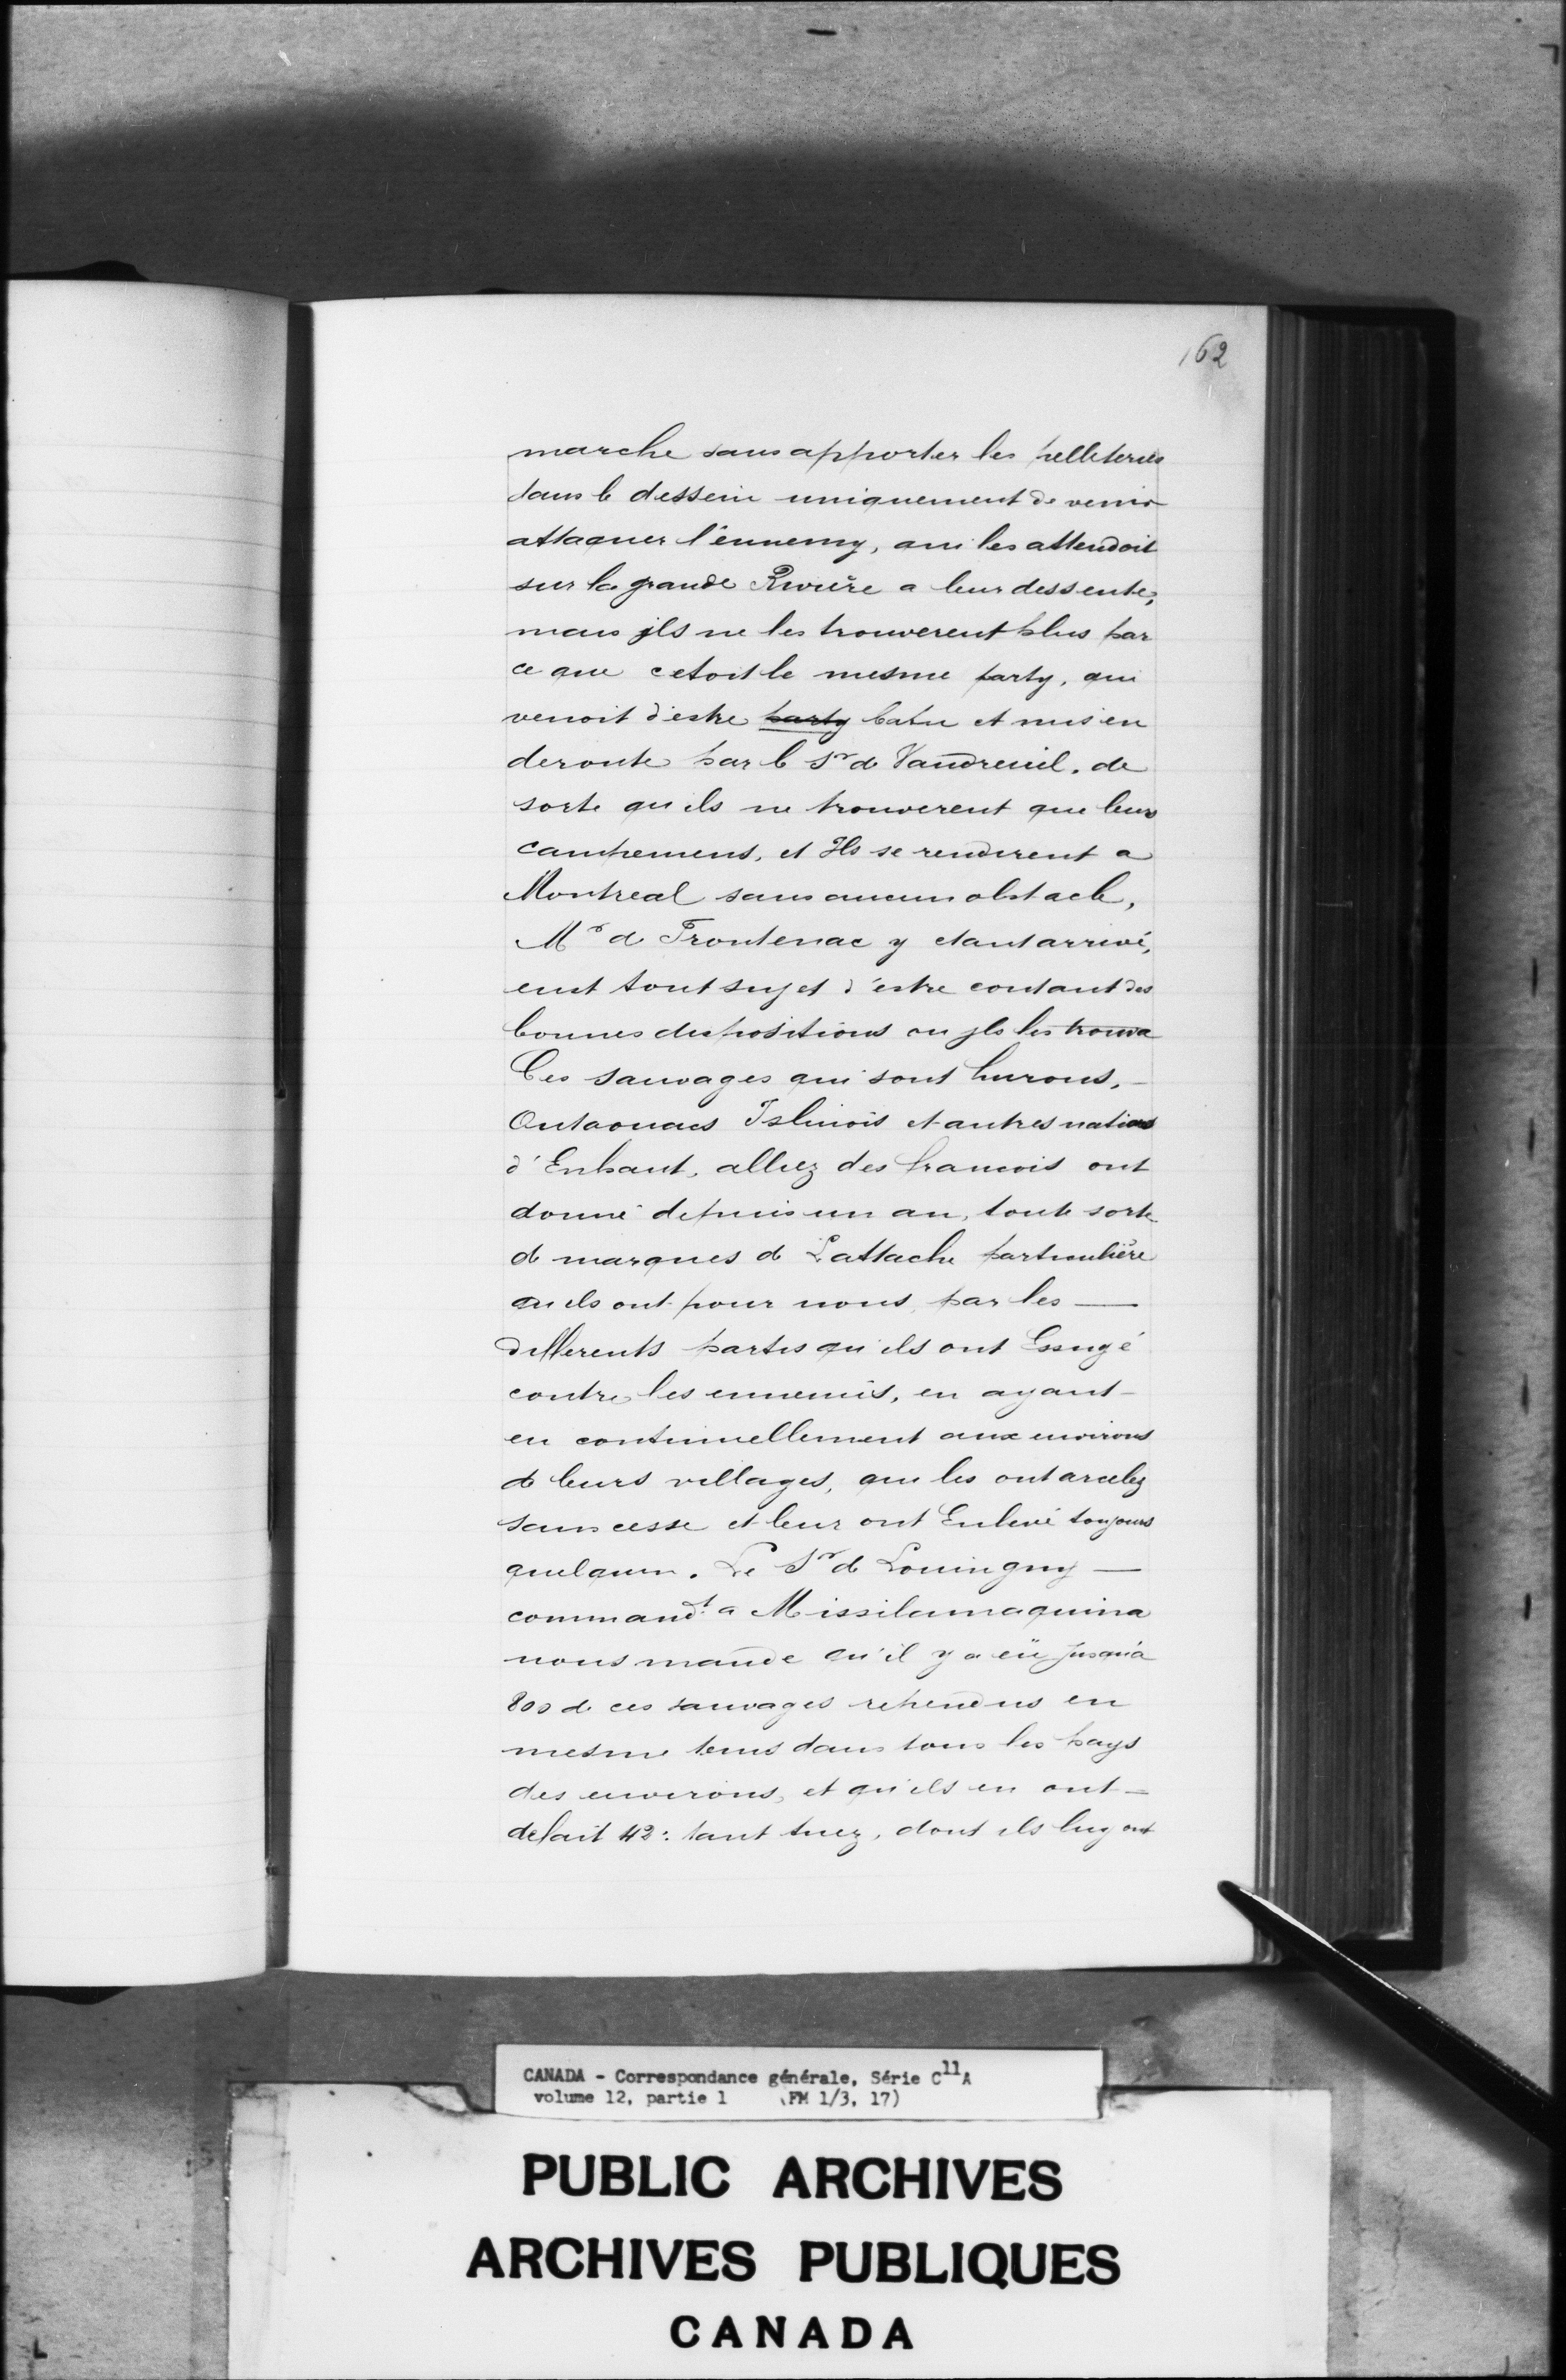 162
marche sans apporter les pelleteries
dans le dessein uniquement de venir
attaquer l'ennemy, qui les attendoit
sur la grande Riviere a leur dessente,
mais jls ne les trouverent plus par
ce que cetoit le mesme party, qui
venoit d'estre party batu et mis en
deroute par le Sr de Vaudreuil. de
sorte qu'ils ne trouverent que leurs
campemens, et Ils se rendirent a
Montreal sans aucun obstacle,
Mr de Frontenac y etant arrivé,
eust tout sujet d'estre contant des
bonnes dispositions ou jls les trouva
Ces sauvages qui sont hurons,
Outaouacs Islinois et autres nations
d'Enhaut, alliez des francois ont
donné depuis un an, toute sorte
de marques de Lattache particulière
qu'ils ont pour nous, par les —
differents partis qu'ils ont
contre les ennemis, en ayant
eu continuellement aux environs
de leurs villages, qui les ont arcelez
sans cesse et leur ont Enlevé toujours
quelqun. Le Sr de Louvigny —
commandt a Missilimaquina
nous mande qu'il y a eü jusqu'a
800 de ces sauvages rependus en
mesme tems dans tous les pays
des environs, et qu'ils en ont
defait 42: tant tuez, dont ils luy ont
CANADA - Correspondance générale, Série C11A
volume 12, partie 1 (FM 1/3, 17)
PUBLIC ARCHIVES
ARCHIVES PUBLIQUES
CANADA